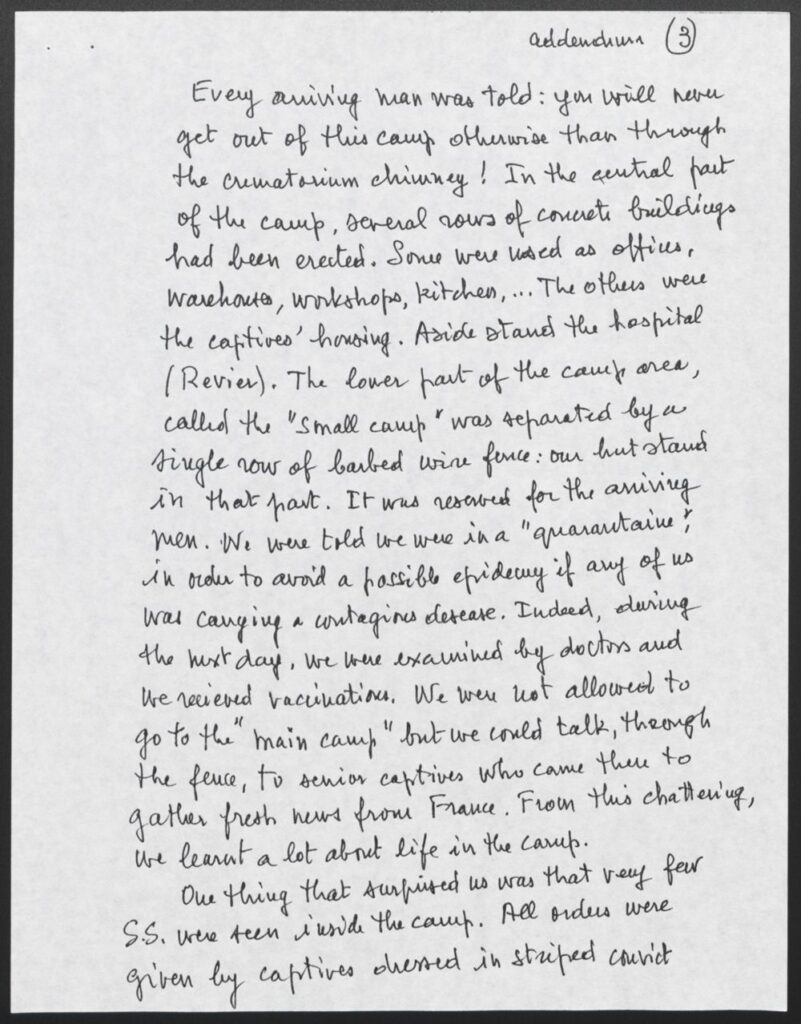 addendum (3)
Every arriving man was told: you will never
get out of this camp otherwise than through
the crematorium chimney! In the central part
of the camp, several rows of concrete buildings
had been erected. Some were used as offices,
warehouses, workshops, kitchen, ... The others were
the captives' housing. Aside stand the hospital
(Revier). The lower part of the camp area,
called the "small camp" was separated by a
single row of barbed wire fence: our hut stand
in that part. It was reserved for the arriving
men. We were told we were in a "quarantaine",
in order to avoid a possible epidemy if any of us
was carrying a contagious desease. Indeed, during
the next day, we were examined by doctors and
we recieved vaccinations. We were not allowed to
go to the "main camp" but we could talk, through
the fence, to senior captives who came there to
gather fresh news from France. From this chattering,
we learnt a lot about life in the camp.
One thing that surprised us was that very few
S.S. were seen inside the camp. All orders were
given by captives dressed in striped convict